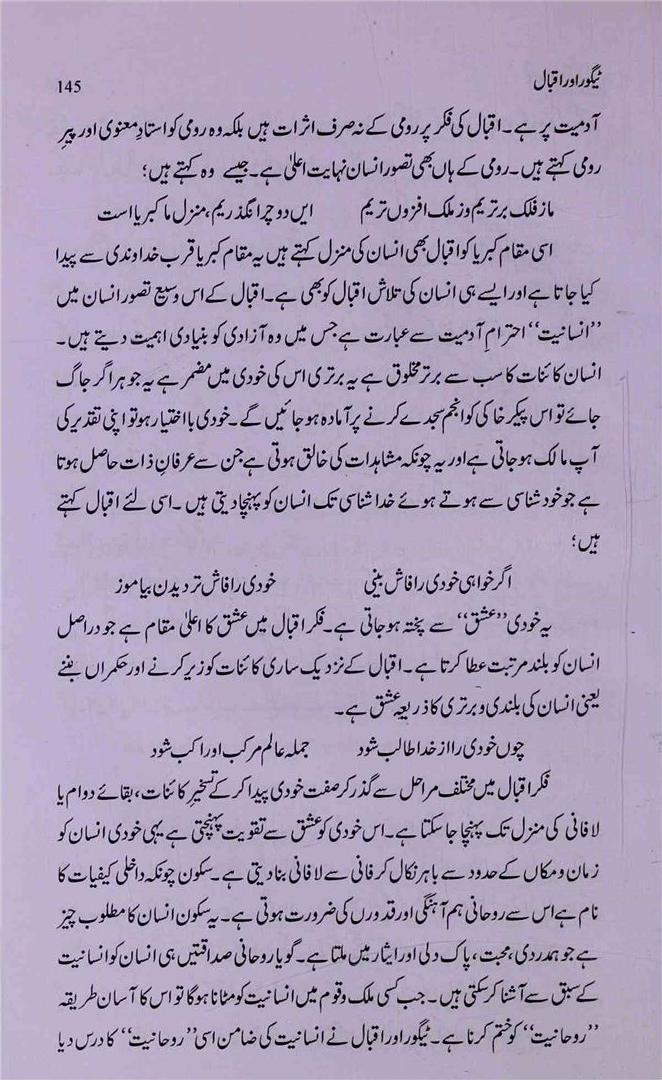 ٹیگور اور اقبال
145
آدمیت پر ہے۔ اقبال کی فکر پر رومی کے نہ صرف اثرات ہیں بلکہ وہ رومی کو استادِ معنوی اور پیرِ
رومی کہتے ہیں۔ رومی کے ہاں بھی تصور انسان نہایت اعلیٰ ہے۔ جیسے وہ کہتے ہیں؛
ما ز فلک برتریم وز ملک افزوں تریم ایں دو چرا نگذریم، منزل ما کبریا است
اسی مقام کبریا کو اقبال بھی انسان کی منزل کہتے ہیں یہ مقام کبریا قرب خداوندی سے پیدا
کیا جاتا ہے اور ایسے ہی انسان کی تلاش اقبال کو بھی ہے۔ اقبال کے اس وسیع تصور انسان میں
’’انسانیت‘‘ احترامِ آدمیت سے عبارت ہے جس میں وہ آزادی کو بنیادی اہمیت دیتے ہیں۔
انسان کائنات کا سب سے برتر مخلوق ہے یہ برتری اس کی خودی میں مضمر ہے یہ جوہر اگر جاگ
جائے تو اس پیکر خاکی کو انجم سجدے کرنے پر آمادہ ہو جائیں گے۔ خودی با اختیار ہو تو اپنی تقدیر کی
آپ مالک ہو جاتی ہے اور یہ چونکہ مشاہدات کی خالق ہوتی ہے جن سے عرفانِ ذات حاصل ہوتا
ہے جو خود شناسی سے ہوتے ہوئے خدا شناسی تک انسان کو پہنچا دیتی ہیں۔ اسی لئے اقبال کہتے
ہیں؛
اگر خواہی خودی را فاش بینی خودی را فاش تر دیدن بیاموز
یہ خودی ’’عشق‘‘ سے پختہ ہو جاتی ہے۔ فکر اقبال میں عشق کا اعلیٰ مقام ہے جو دراصل
انسان کو بلند مرتبت عطا کرتا ہے۔ اقبال کے نزدیک ساری کائنات کو زیر کرنے اور حکمراں بننے
یعنی انسان کی بلندی و برتری کا ذریعہ عشق ہے۔
چوں خودی را از خدا طالب شود جملہ عالم مرکب او راکب شود
فکر اقبال میں مختلف مراحل سے گذر کر صفت خودی پیدا کر کے تسخیر کائنات، بقائے دوام یا
لافانی کی منزل تک پہنچا جا سکتا ہے۔ اس خودی کو عشق سے تقویت پہنچتی ہے یہی خودی انسان کو
زمان و مکاں کے حدود سے باہر نکال کر فانی سے لافانی بنا دیتی ہے۔ سکون چونکہ داخلی کیفیات کا
نام ہے اس سے روحانی ہم آہنگی اور قدروں کی ضرورت ہوتی ہے۔ یہ سکون انسان کا مطلوب چیز
ہے جو ہمدردی، محبت، پاک دلی اور ایثار میں ملتا ہے۔ گویا روحانی صداقتیں ہی انسان کو انسانیت
کے سبق سے آشنا کر سکتی ہیں۔ جب کسی ملک و قوم میں انسانیت کو مٹانا ہو گا تو اس کا آسان طریقہ
’’روحانیت‘‘ کو ختم کرنا ہے۔ ٹیگور اور اقبال نے انسانیت کی ضامن اسی ’’روحانیت‘‘ کا درس دیا